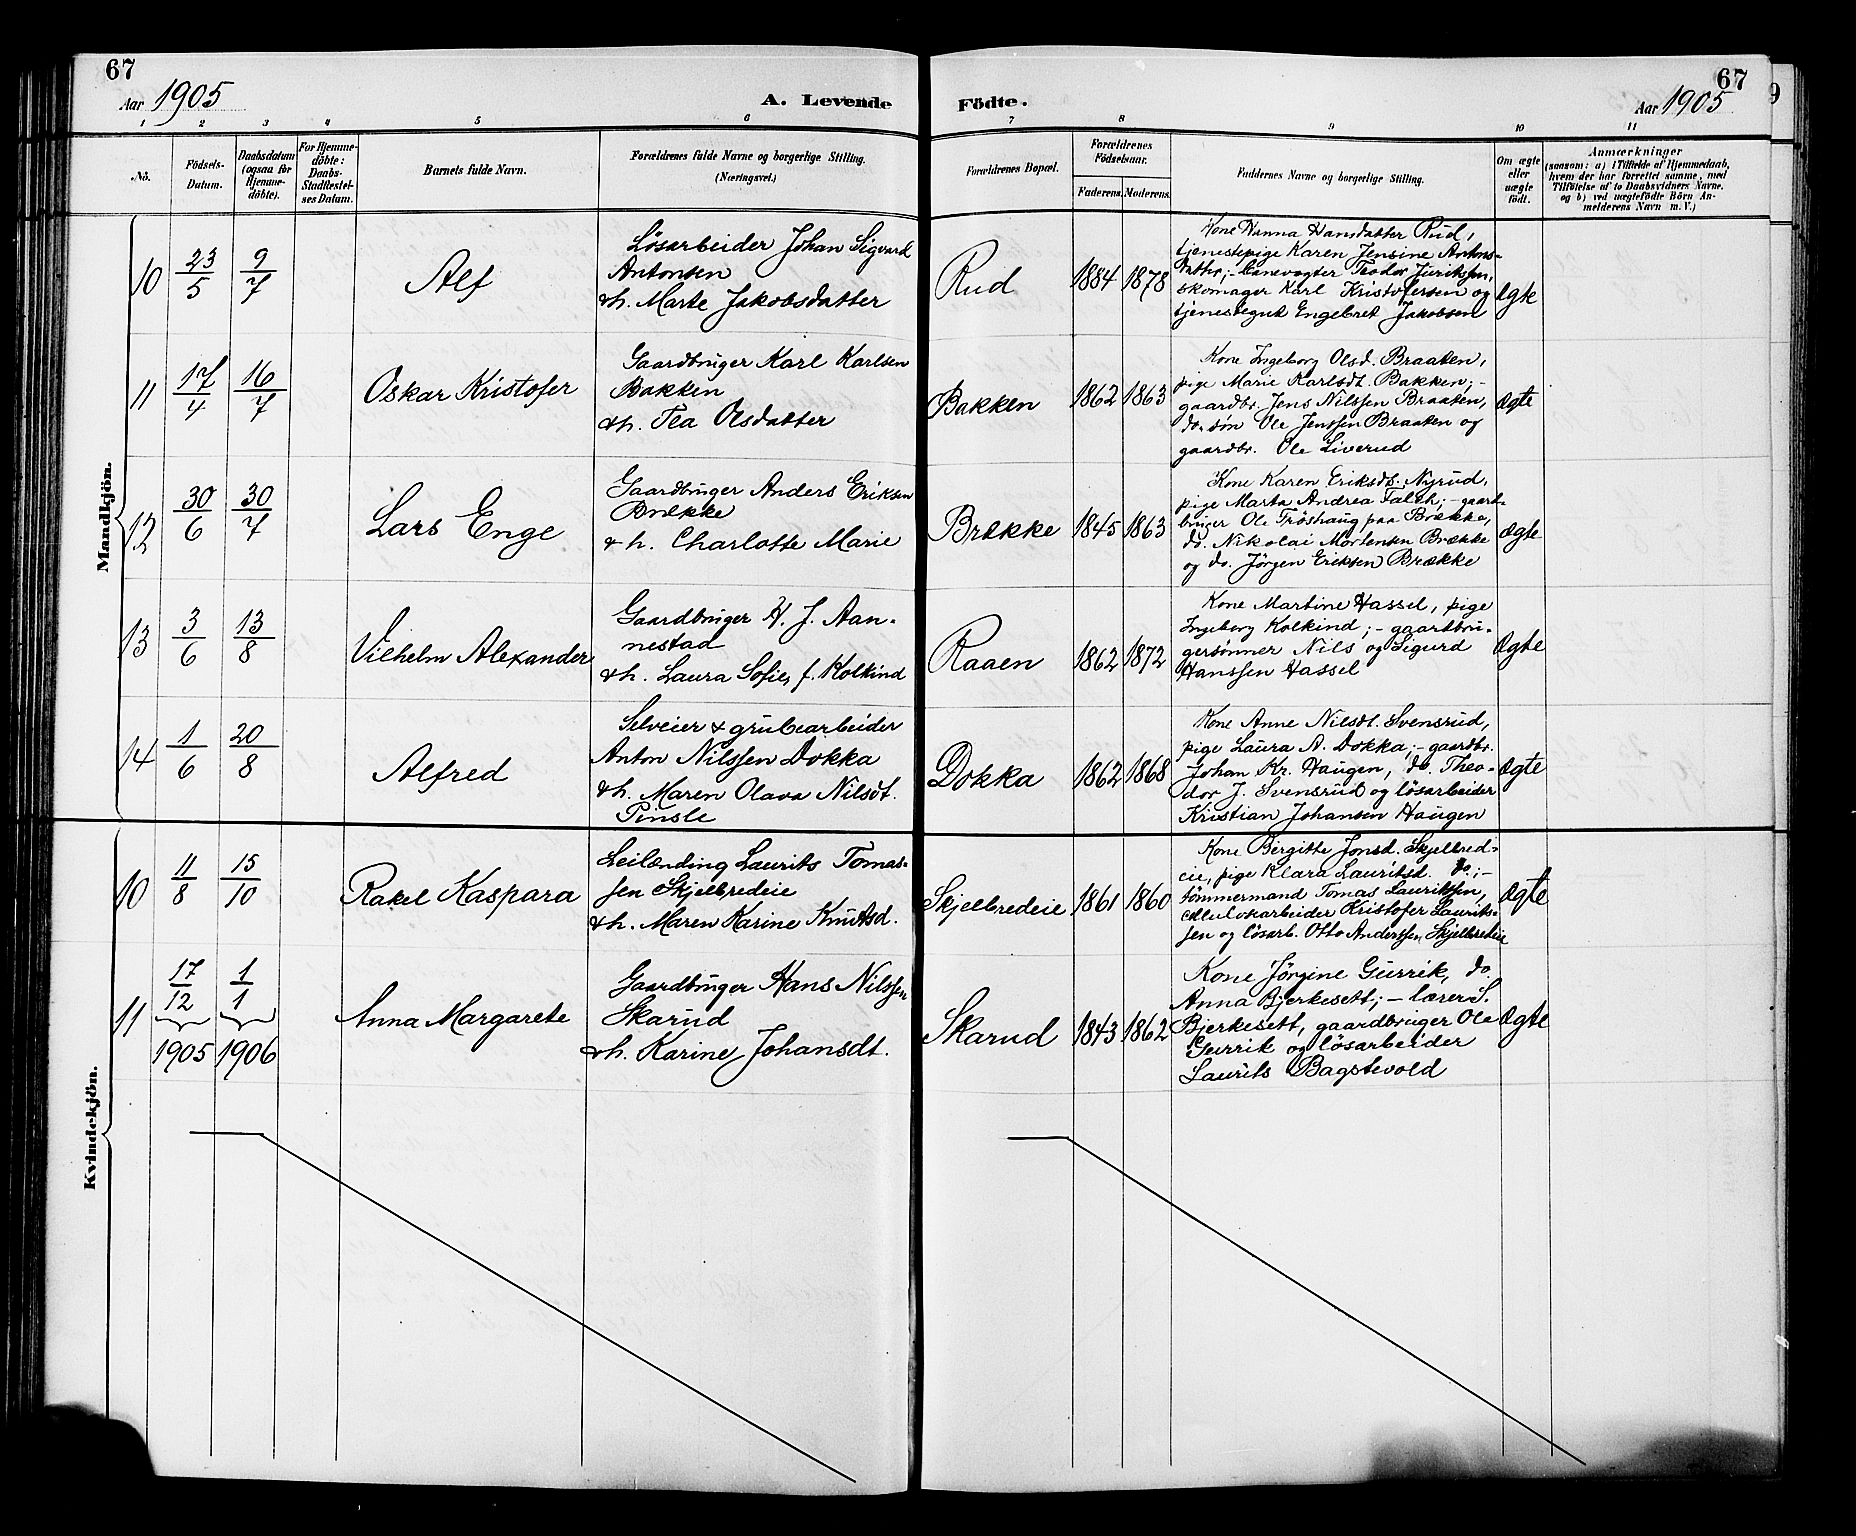 67
Aar 1905
A. Levende
Födte.
67
Aar 1905
9
1 2 3 4 5 6 7 8 9 10 11
No.
Födsels-
Datum.
Daabsdatum
(ogsaa for
Hjemme-
döbte).
For Hjemme-
döbte:
Daabs-
Stadfæstel-
ses Datum.
Barnets fulde Navn.
Forældrenes fulde Navne og borgerlige Stilling.
(Næringsvei.)
Forældrenes Bopæl.
Forældrenes
Födselsaar.
Faderens. Moderens.
Faddernes Navne og borgerlige Stilling.
Om ægte
eller
uægte
födt.
Anmærkninger
(saasom: a) i Tilfælde af Hjemmedaab,
hvem der har forrettet samme, med
Tilföielse af to Daabsvidners Navne,
og b) ved uægtefödte Börn An-
melderens Navn m. V.)
Mandkjön.
10
23/5
9/7
Alf
Lösarbeider Johan Sigvard
Antonsen
& h. Marte Jakobsdatter
Rud
1884 1878
Kone Hanna Hansdatter Rud,
tjenestepige Karen Jensine Antons-
datter; - banevogter Teodor Juritssen,
skomager Karl Kristofersen og
tjenestegut Engebret Jakobsen
Ægte
11
17/4
16/7
Oskar Kristofer
Gaardbruger Karl Karlsen
Bakken
& h. Tea Olsdatter
Bakken
1862 1863
Kone Ingeborg Olsd. Braaten,
pige Marie Karlsdt. Bakken; -
gaardbr. Jens Nilssen Braaten,
do. sön Ole Jenssen Braaten og
gaardbr. Ole Liverud
Ægte
12
30/6
30/7
Lars Enge
Gaardbruger Anders Eriksen
Brække
& h. Charlotte Marie
Brække
1845 1863
Kone Karen Eriksdt. Nyrud,
pige Marta Andrea Falch; - gaard-
bruger Ole Tröshaug paa Brække,
do. Nikolai Mortensen Brække
og do. Jörgen Eriksen Brække
Ægte
13
3/6
13/8
Vilhelm Alexander
Gaardbruger H. J. Aan-
nestad
& h. Laura Sofie, f. Kolkind
Raaen
1862 1872
Kone Martine Hassel, pige
Ingeborg Kolkind; - gaardbru-
gersönner Nils og Sigurd
Hanssen Hassel
Ægte
14
1/6
20/8
Alfred
Selveier & grubearbeider
Anton Nilssen Dokka
& h. Maren Olava Nilsdt.
Pinsle
Dokka
1862 1868
Kone Anne Nilsdt. Svensrud,
pige Laura A. Dokka; - gaardbr.
Johan Kr. Haugen, do. Theo-
dor J. Svensrud og lösarbeider
Kristian Johansen Haugen
Ægte
Kvindekjön.
10
11/8
15/10
Rakel Kaspara
Leilænding Laurits Tomas-
sen Skjelbredeie
& h. Maren Karine Knutsd.
Skjelbredeie
1861 1860
Kone Birgitte Jonsd. Skjelbred-
eie, pige Klara Lauritsd. do.; -
tömmermand Tomas Lauritssen,
cellulosarbeider Kristofer Laurits-
sen og lösarb. Otto Anderssen Skjelbredeie
Ægte
11
17/12
1905
1/1
1906
Anna Margarete
Gaardbruger Hans Nilssen
Skarud
& h. Karine Johansdt.
Skarud
1843 1862
Kone Jörgine Gurrik, do.
Anna Bjerkesett; - lærer S.
Bjerkesett, gaardbruger Ole
Gurrik og lösarbeider
Laurits Bagstevold
Ægte